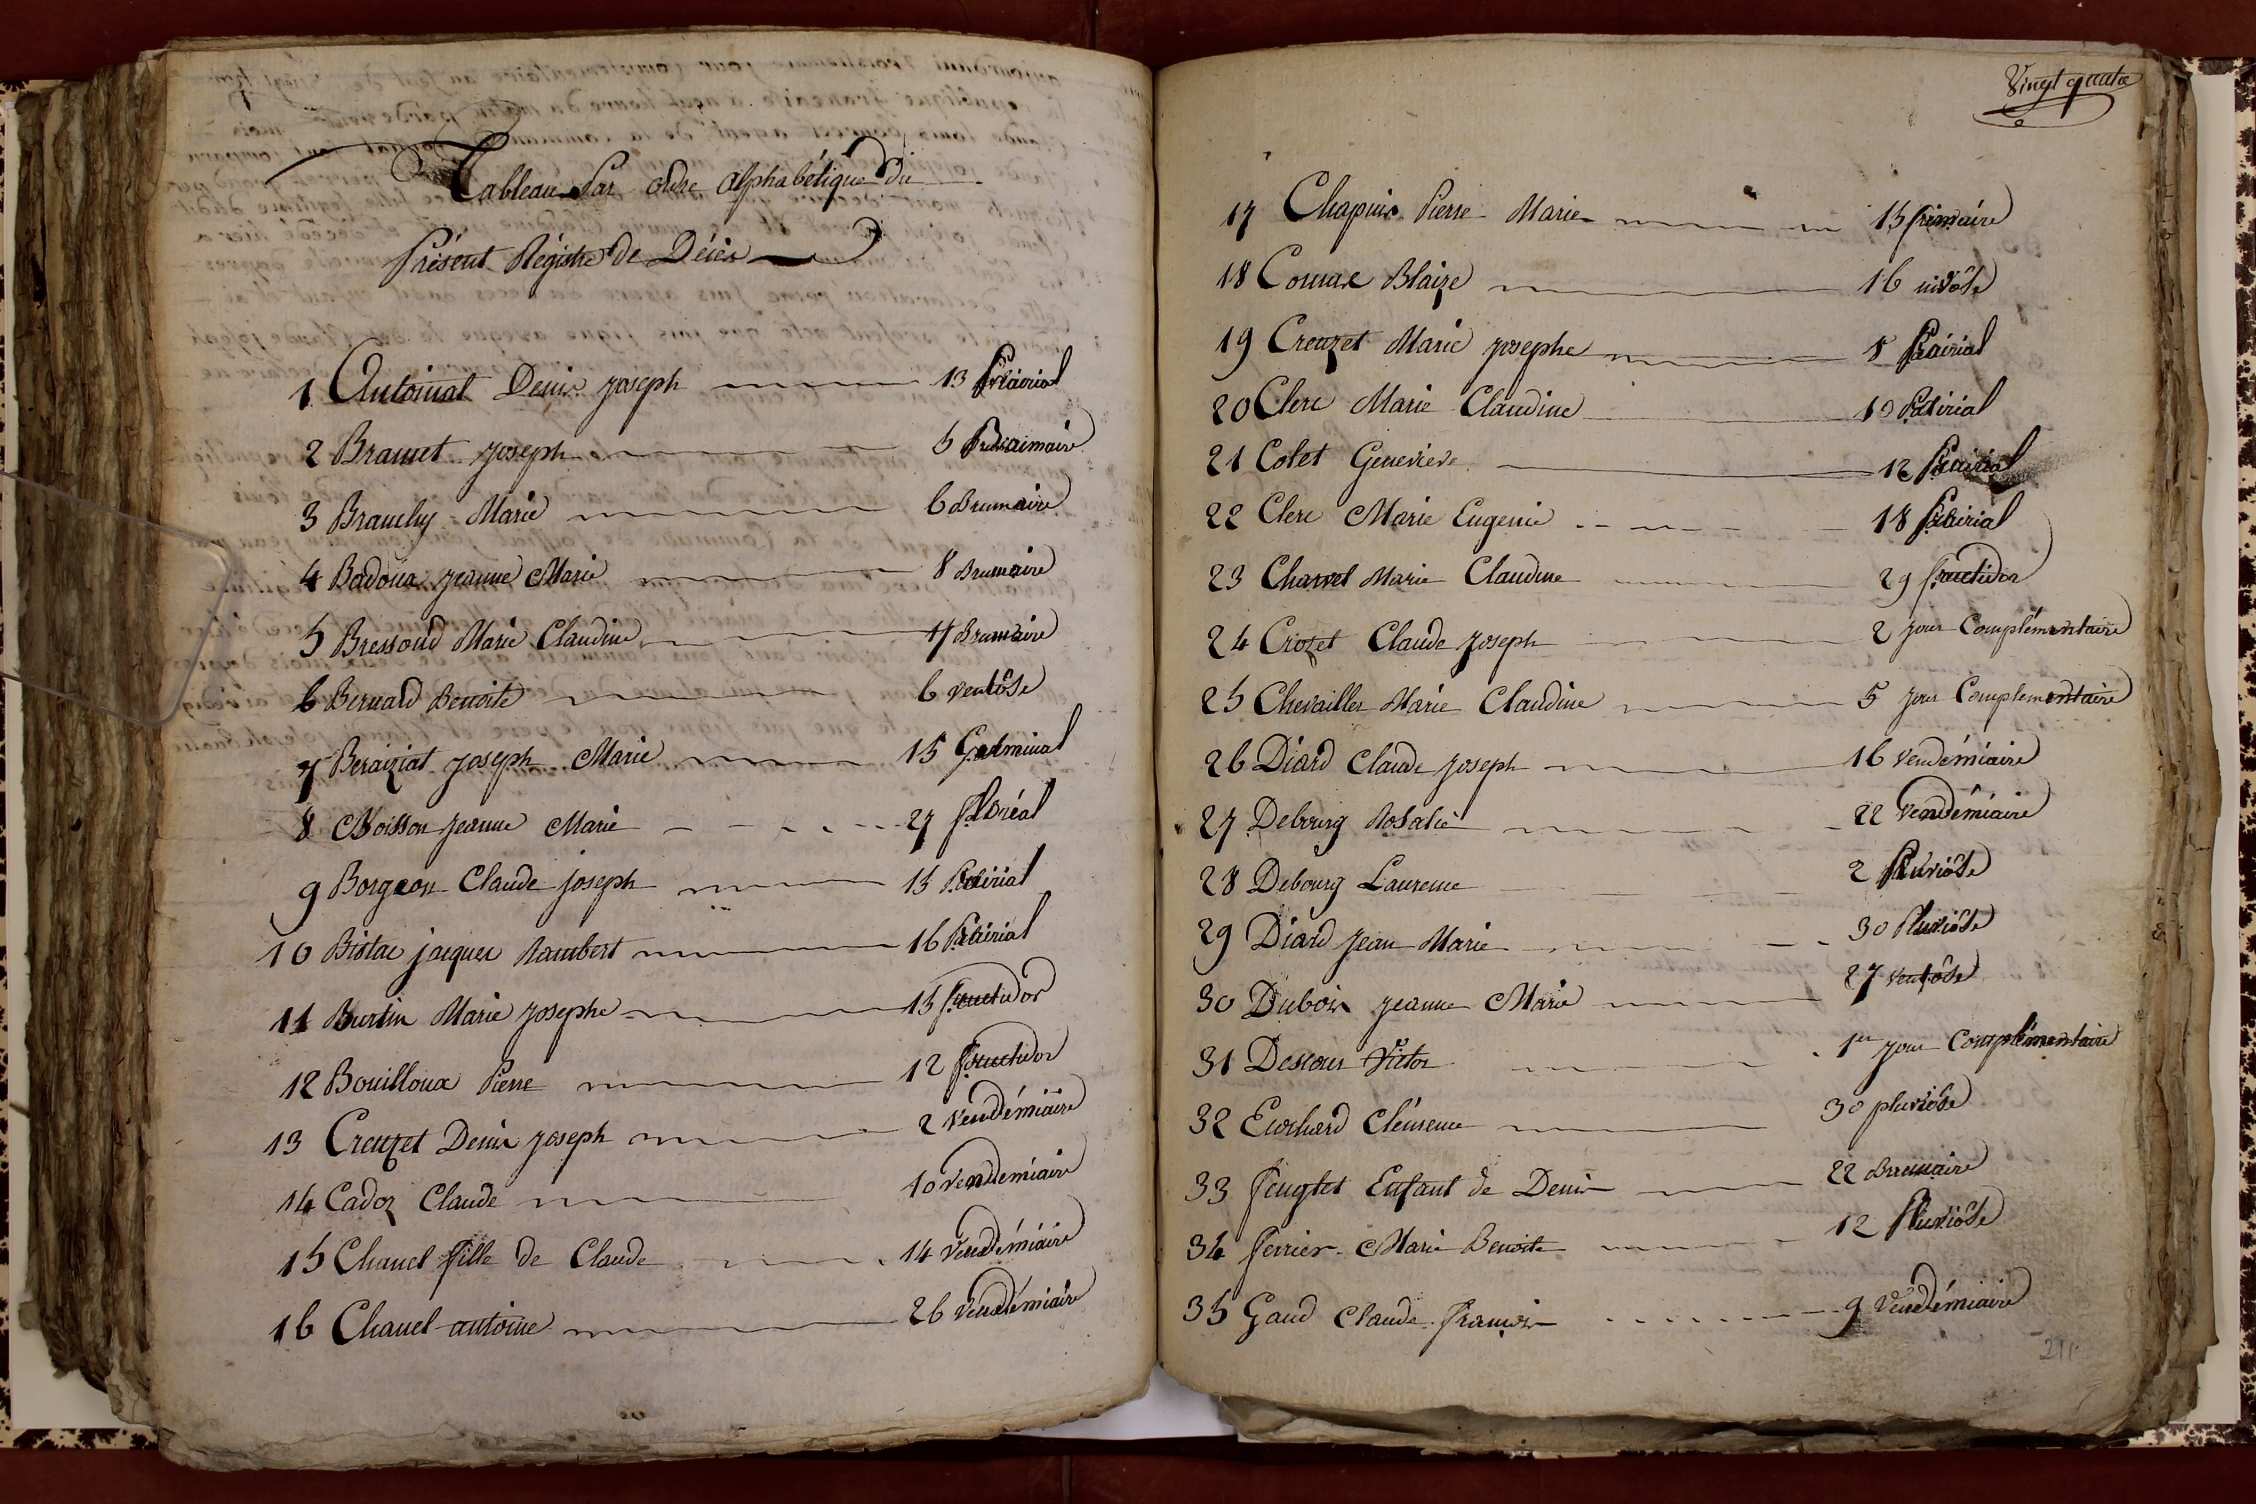 Tableau Par ordre alphabétique du
Présent Régistre de Décès
1 Antoinat Denis joseph 13 Prairial
2 Bramet joseph 5 Brumaire
3 Branchy Marie 6 Brumaire
4 Badoux jeanne Marie 8 Brumaire
5 Bressoud Marie Claudine 17 Brumaire
6 Bernard Benoite 6 ventôse
7 Beraiziat joseph Marie 15 Germinal
8 Boisson jeanne Marie 27 floréal
9 Borgeon Claude joseph 15 Prairial
10 jacques Rambert 16 Prairial
11 Burtin Marie josephe 15 fructidor
12 Bouilloux Pierre 12 fructidor
13 Creuzet Denis joseph 2 Vendémiaire
14 Cadoz Claude 10 Vendemiaire
15 Chanel fille de Claude 14 Vendémiaire
16 Chanel antoine 26 Vendémiaire
Vingt quatre
17 Chapuis Pierre Marie 15 frimaire
18 Blaize 16 nivôse
19 Creuzet Marie josephe 8 Prairial
20 Clerc Marie Claudine 10 Prairial
21 Colet Genevieve 12 Prairial
22 Clerc Marie Eugenie 18 Prairial
23 Charvet Marie Claudine 29 fructidor
24 Crozet Claude joseph 2 jour Complémentaire
25 Chevailler Marie Claudine 5 jour Complementaire
26 Diard Claude joseph 16 Vendémiaire
27 Debourg Rosalie 22 Vendémiaire
28 Debourg Laurence 2 Pluviôse
29 Diard jean Marie 30 Pluviôse
30 Dubois jeanne Marie 27 ventôse
31 Descour Victor 1er jour Complémentaire
32 Eschard Clémence 30 pluviôse
33 feuglet Enfant de Denis 22 Brumaire
34 ferrier Marie Benoite 12 Pluviôse
35 Gaud Claude françois 9 Vendémiaire